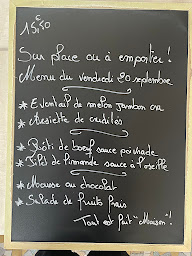 13€50
Sur place ou à emporter !
Menu du vendredi 20 septembre
* Eventail de melon jambon cru
* Assiette de crudités
* Rôti de boeuf sauce poivrade
* Filet de limande sauce à l'oseille
* Mousse au chocolat
* Salade de fruits frais
Tout est fait "Maison" !